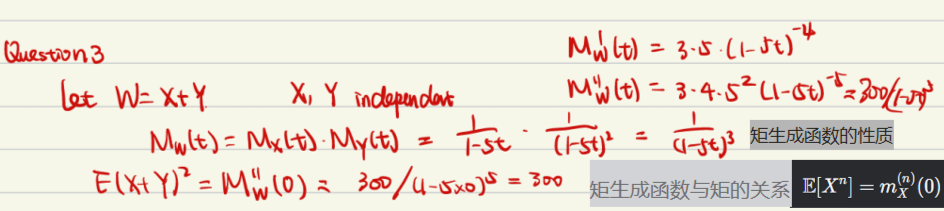 Question 3
M'_W(t) = 3·5·(1-5t)^{-4}
Let W = X+Y    X, Y independent
M''_W(t) = 3·4·5^2 (1-5t)^{-5} = 300/(1-5t)^5
M_W(t) = M_X(t)·M_Y(t) = \frac{1}{1-5t} · \frac{1}{(1-5t)^2} = \frac{1}{(1-5t)^3} 矩生成函数的性质
E(X+Y)^2 = M''_W(0) = 300/(1-5×0)^5 = 300 矩生成函数与矩的关系 𝔼[X^n] = m_X^{(n)}(0)